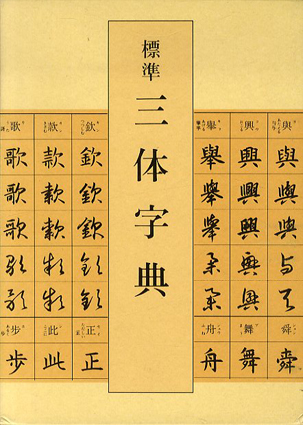 標準
三体字典
與 興 舉
與 興 舉
與 興 擧
與 興 擧
与 興 挙
与 興 挙
舜 舞 舟
舜 舞 舟
欽 款 歌
欽 款 歌
欽 款 歌
欽 款 歌
欽 款 歌
欽 款 歌
正 此 歩
正 此 步